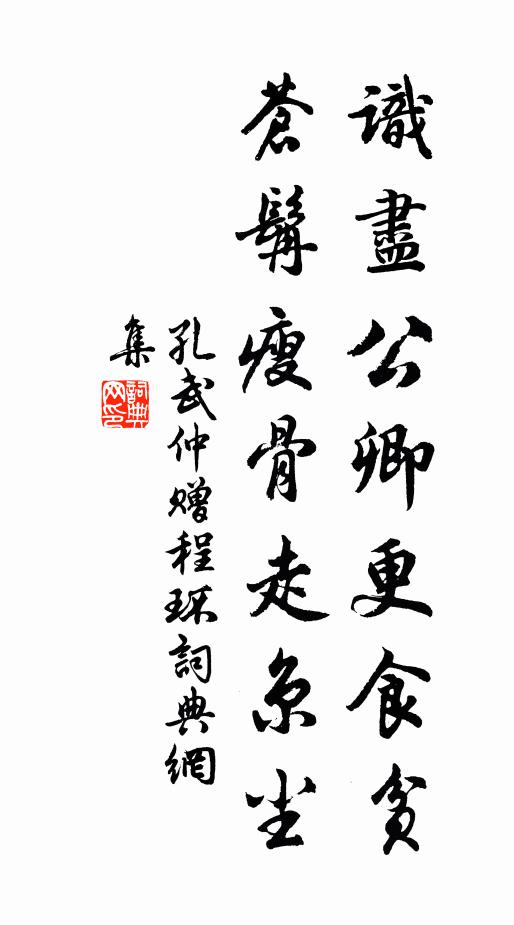 識盡公卿更食貧
蒼髯瘦骨走京尘
孔武仲贈程詞典網
集
詞典網印